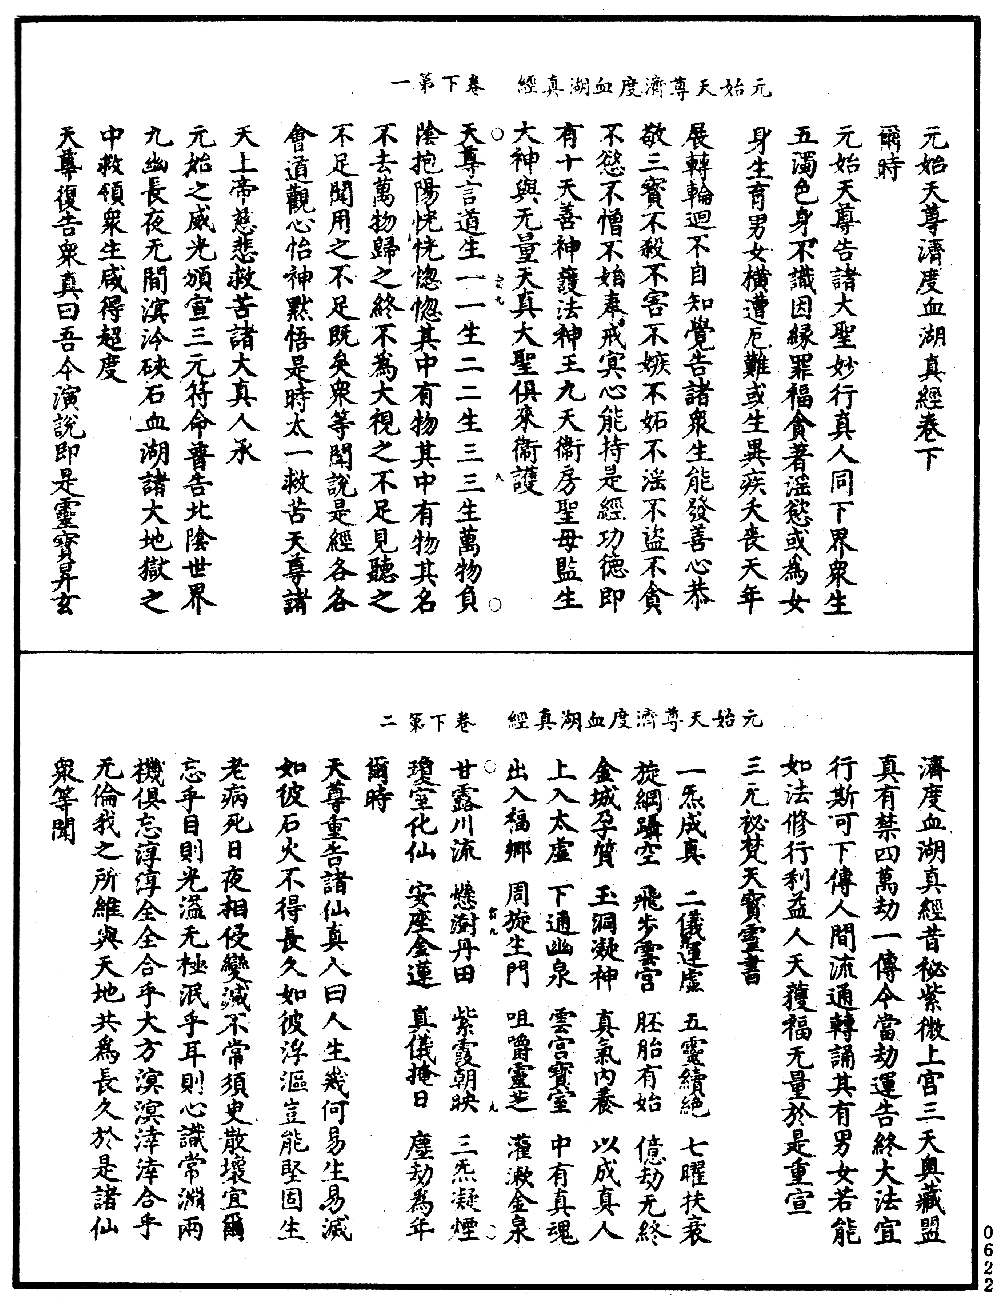 元始天尊濟度血湖真經　卷下第一
元始天尊濟度血湖真經卷下
爾時
元始天尊告諸大聖妙行真人同下界衆生
五濁色身不識因緣罪福貪著滛慾或為女
身生育男女橫遭厄難或生異疾夭喪天年
展轉輪迴不自知覺告諸衆生能發善心恭
敬三寳不殺不害不嫉不妬不滛不盜不貪
不慾不憎不始奉戒冥心能持是經功德即
有十天善神護法神王九天衛房聖母監生
大神與无量天真大聖俱來衞護
天尊言道生一一生二二生三三生萬物負
陰抱陽恍恍惚惚其中有物其中有物其名
不去萬物歸之終不為大視之不足見聽之
不足聞用之不足既矣衆等聞說是經各各
會道觀心怡神黙悟是時太一救苦天尊諸
天上帝慈悲救苦諸大真人承
元始之威光頒宣三元符命普告北陰世界
九幽長夜无間溟泠硤石血湖諸大地獄之
中救領衆生咸得超度
天尊復告衆真曰吾今演說即是靈寳昇玄
元始天尊濟度血湖真經　卷下第二
濟度血湖真經昔秘紫微上宫三天奥藏盟
真有禁四萬劫一傳今當劫運告終大法宜
行斯可下傳人間流通轉誦其有男女若能
如法修行利益人天獲福无量於是重宣
三元祕梵天寳靈書
一炁成真　二儀運虛　五靈續絶　七曜扶衰
旋綱躡空　飛步雲宮　胚胎有始　億劫无終
金城孕質　玉洞凝神　真氣内養　以成真人
上入太虛　下通幽泉　雲宫寳室　中有真魂
出入福鄉　周旋生門　咀嚼靈芝　灌漱金泉
甘露川流　懸澍丹田　紫霞朝映　三炁凝煙
瓊室化仙　安座金蓮　真儀掩日　塵劫為年
爾時
天尊重告諸仙真人曰人生幾何易生易滅
如彼石火不得長久如彼浮漚豈能堅固生
老病死日夜相侵變滅不常須臾散壞宜爾
忘乎目則光溢无極泯乎耳則心識常淵兩
機俱忘淳淳全全合乎大方溟溟涬涬合乎
无倫我之所維與天地共為長久於是諸仙
衆等聞
0622